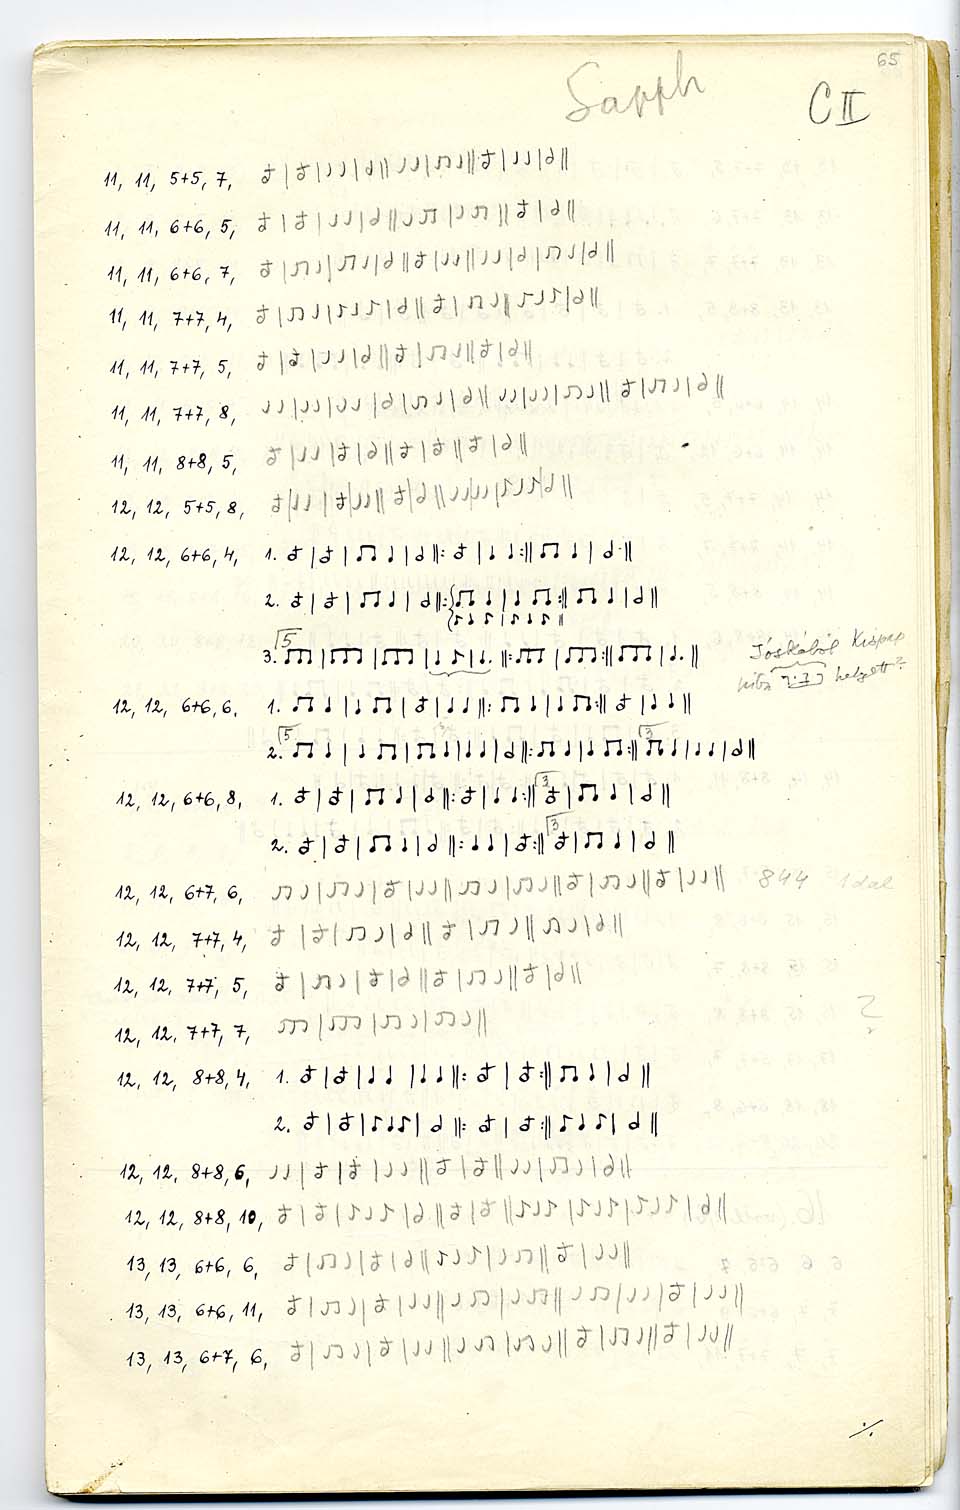 65
Sapph
C II
11, 11, 5+5, 7,
11, 11, 6+6, 5,
11, 11, 6+6, 7,
11, 11, 7+7, 4,
11, 11, 7+7, 5,
11, 11, 7+7, 8,
11, 11, 8+8, 5,
12, 12, 5+5, 8,
12, 12, 6+6, 4, 1.
2.
5
3. Jóskából Kispap
helyett?
12, 12, 6+6, 6. 1.
5 3
2.
12, 12, 6+6, 8, 1. 3
2. 3
12, 12, 6+7, 6, 844 1 dal
12, 12, 7+7, 4,
12, 12, 7+7, 5,
12, 12. 7+7, 7, ?
12, 12, 8+8, 4, 1.
2.
12, 12, 8+8, 6,
12, 12, 8+8, 10,
13, 13, 6+6, 6,
13, 13, 6+6, 11,
13, 13, 6+7, 6,
./.